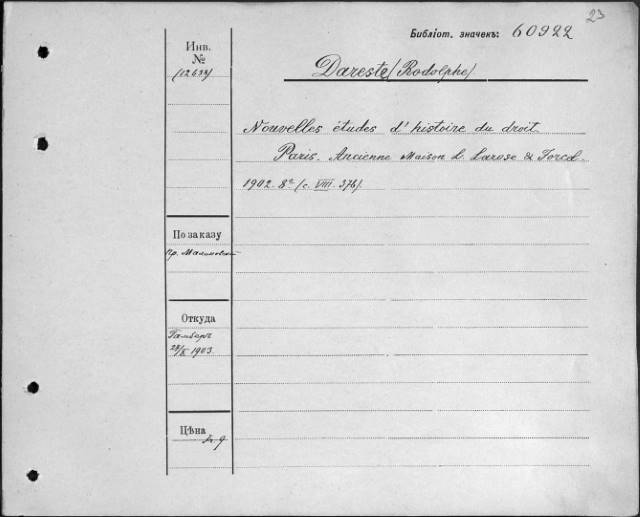 23
Библіот. значекъ: 60922
Инв.
№
(12697)
Dareste (Rodolphe)
Nouvelles études d'histoire du droit.
Paris. Ancienne Maison L. Larose & Forcel.
1902. 8º (с. VIII. 376).
По заказу
Пр. Малиновскій
Откуда
1903.
Цѣна